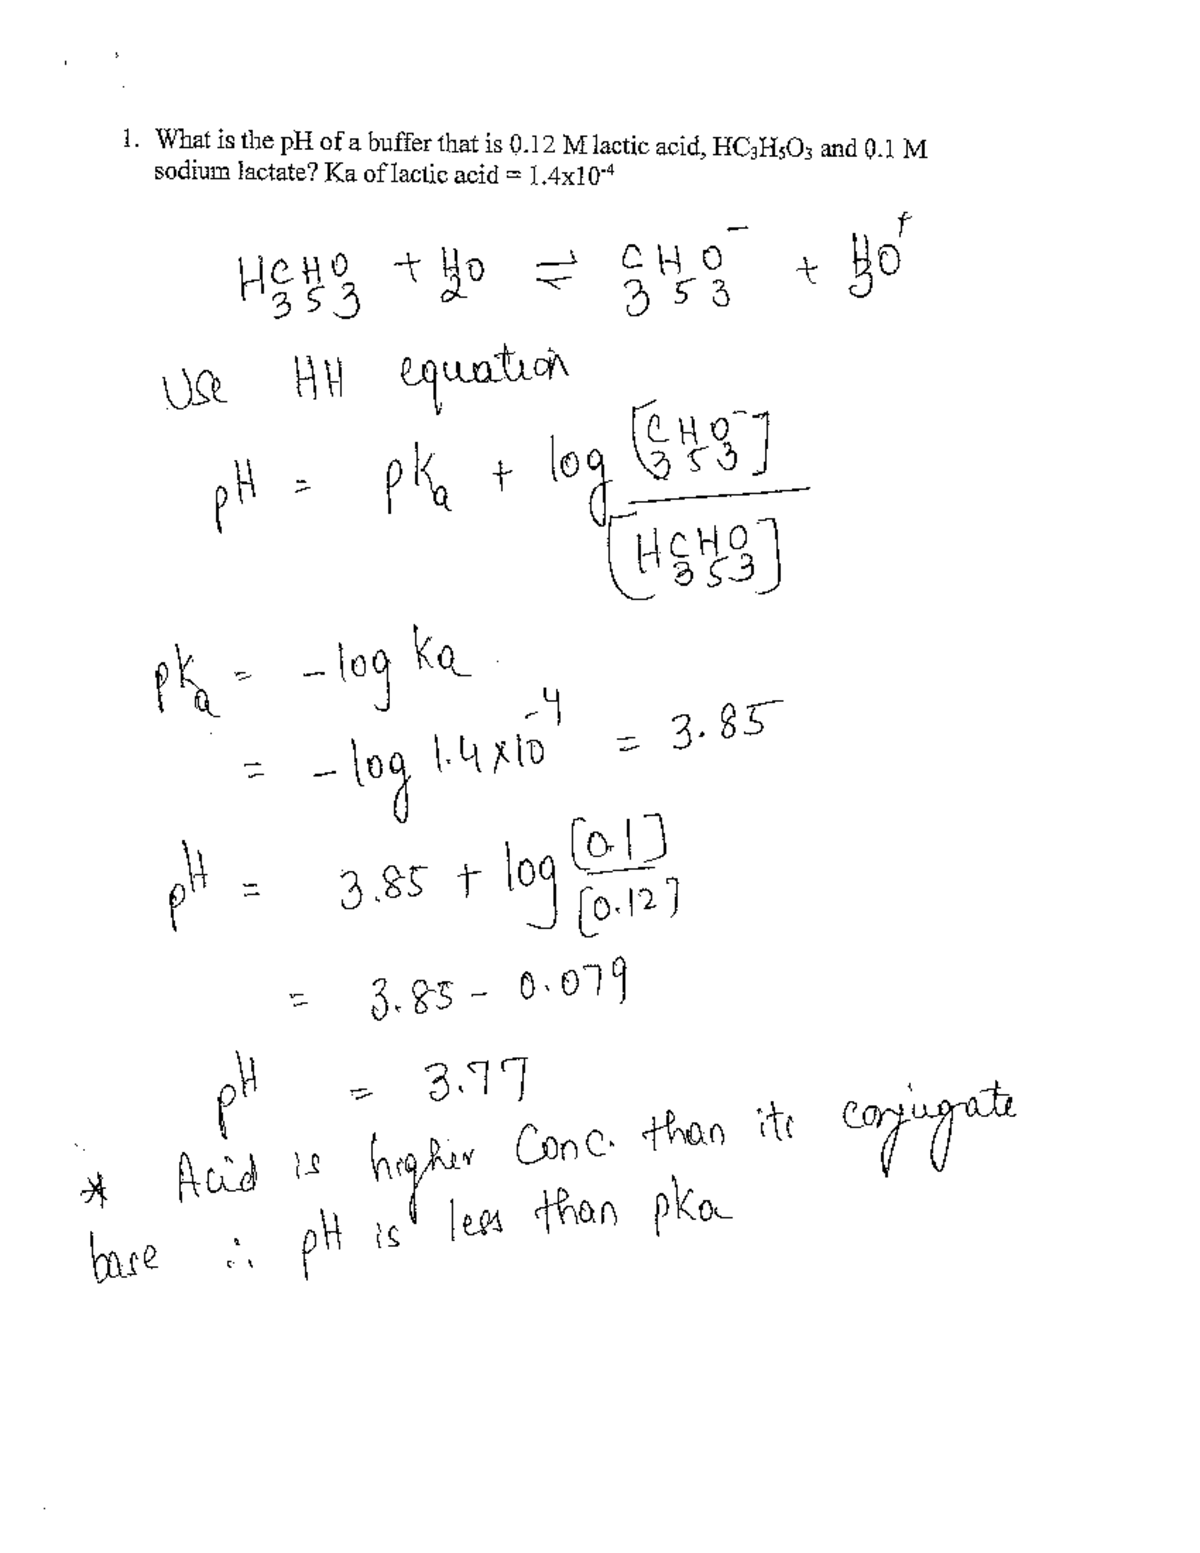 1. What is the pH of a buffer that is 0.12 M lactic acid, HC₃H₅O₃ and 0.1 M
sodium lactate? Ka of lactic acid = 1.4x10⁻⁴
HC₃H₅O₃ + H₂O ⇌ C₃H₅O₃⁻ + H₃O⁺
Use HH equation
pH = pKₐ + log [C₃H₅O₃⁻]
[HC₃H₅O₃]
pKₐ = -log Ka
= -log 1.4x10⁻⁴ = 3.85
pH = 3.85 + log [0.1]
[0.12]
= 3.85 - 0.079
pH = 3.77
* Acid is higher Conc. than its conjugate
base ∴ pH is less than pka